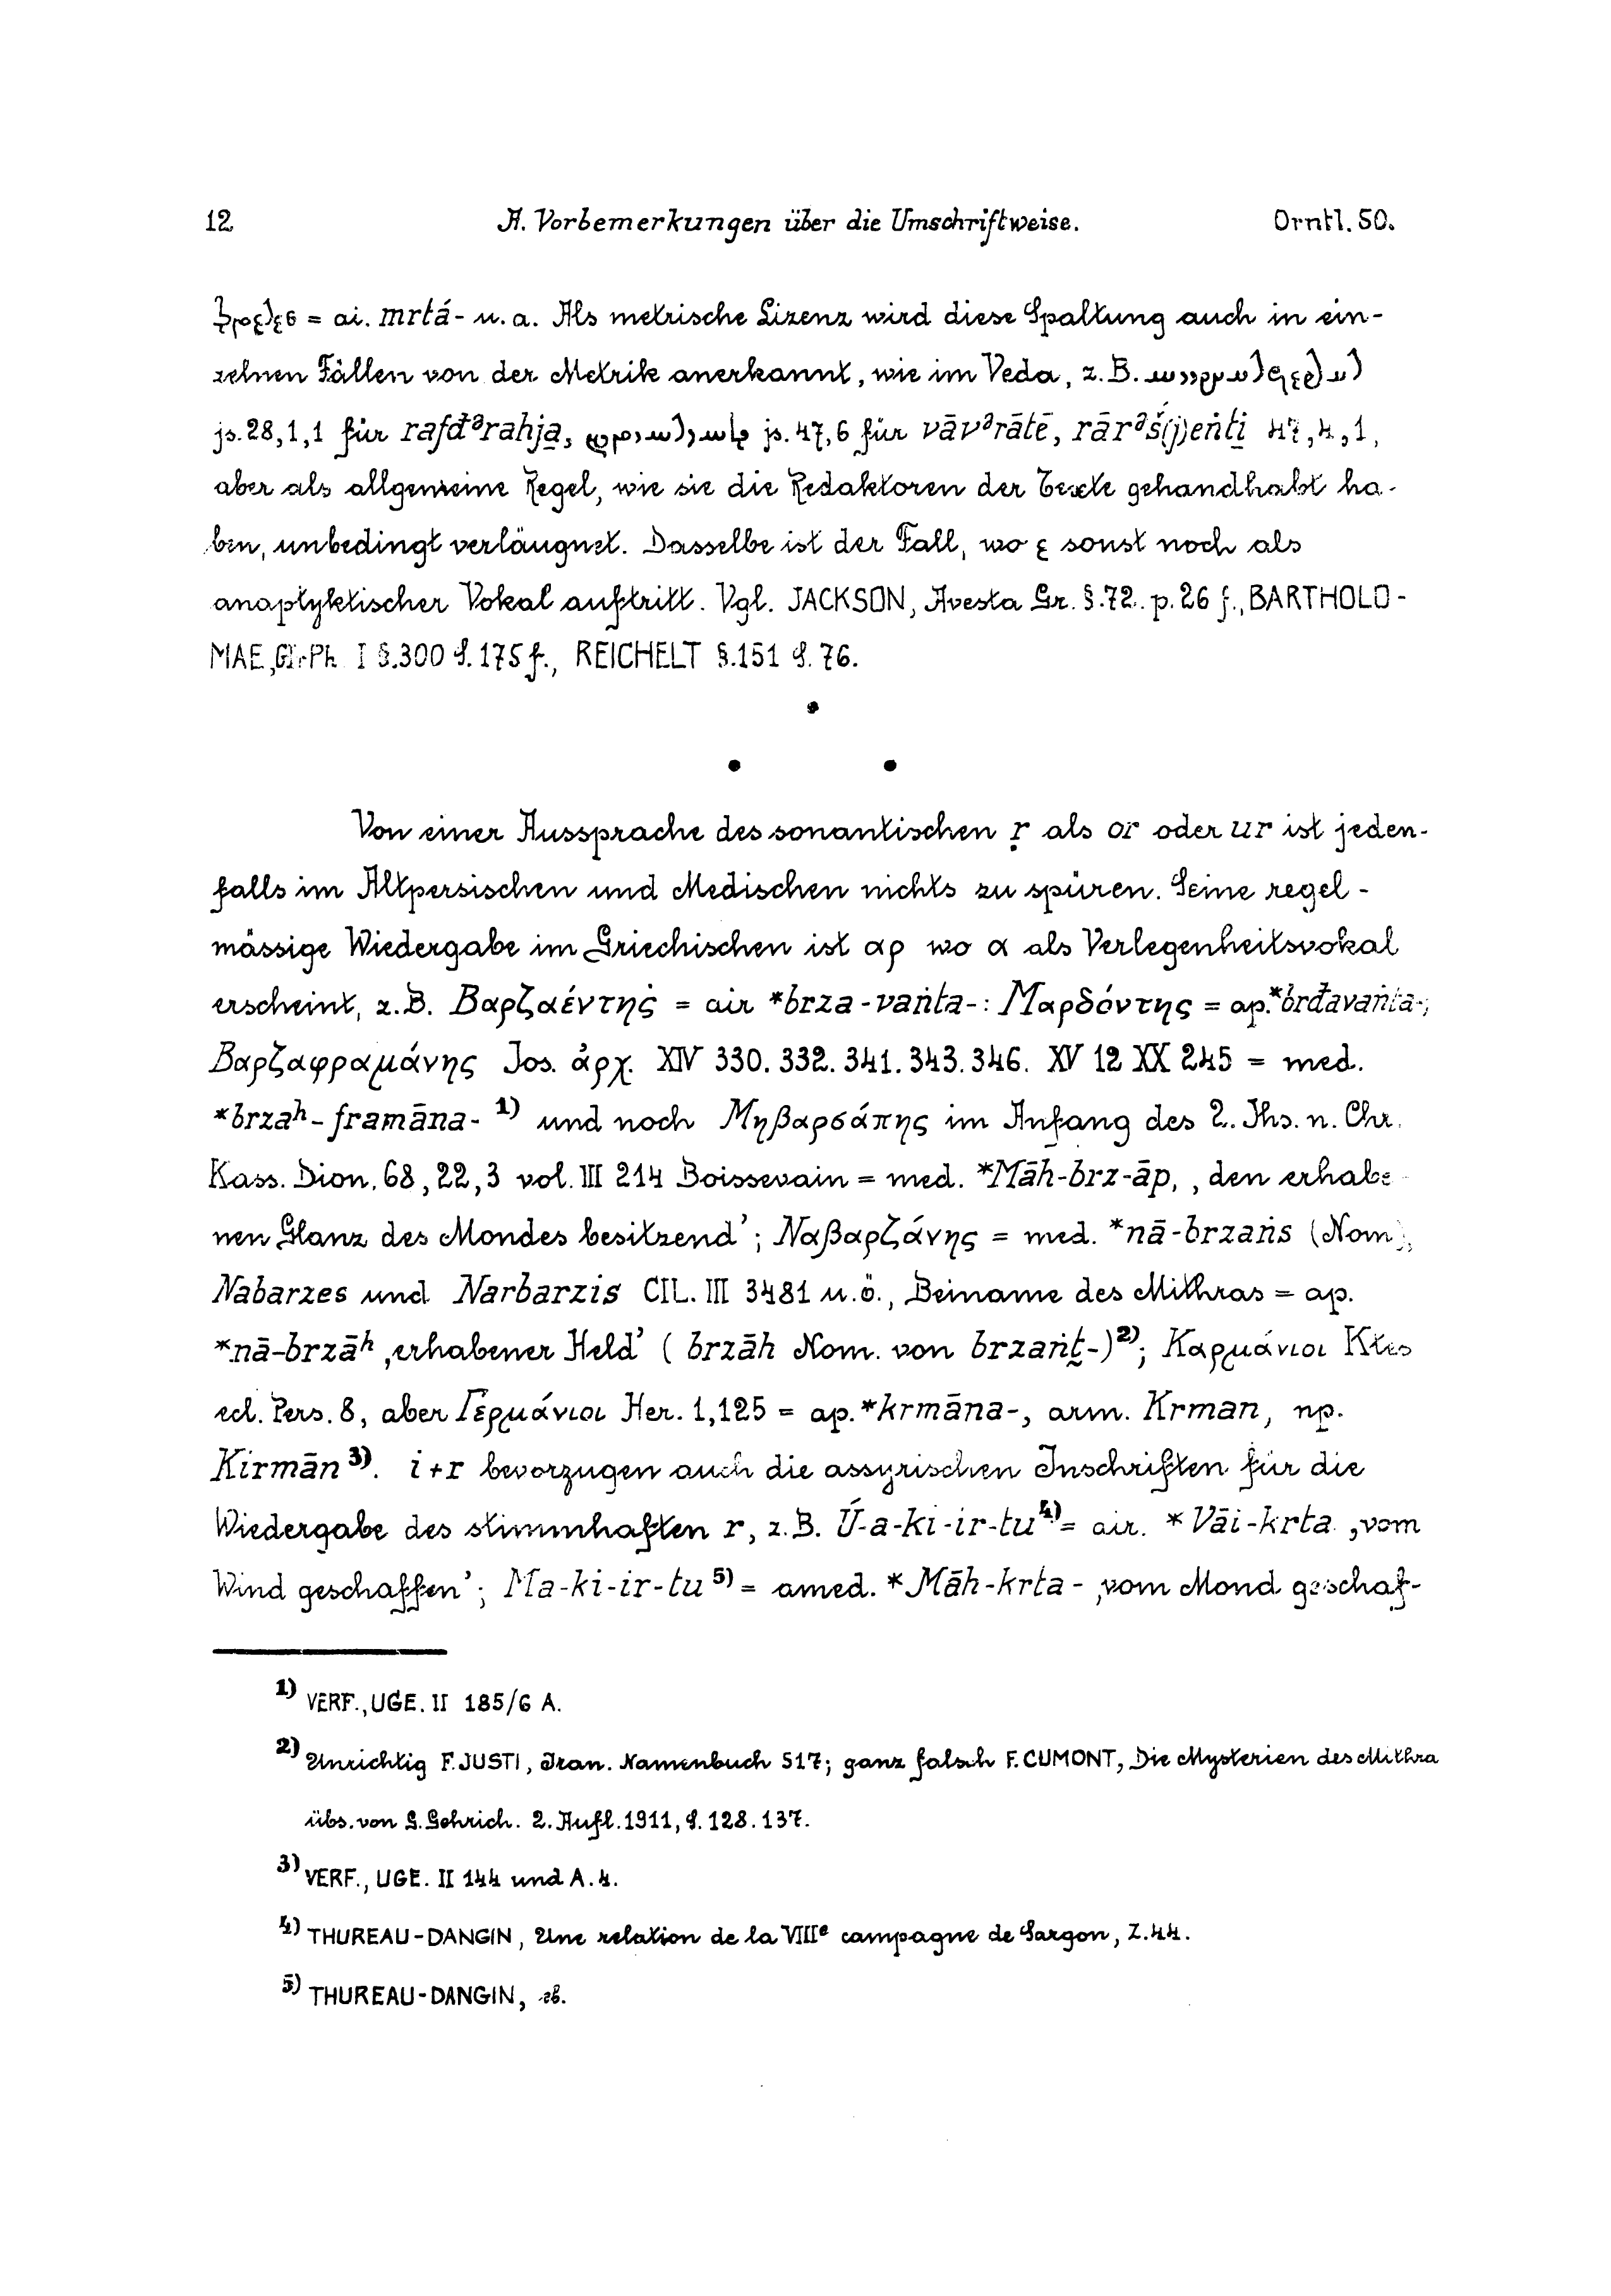 12 A. Vorbemerkungen über die Umschriftweise. Orntl. 50.
= ai. mrtá- u. a. Als metrische Lizenz wird diese Spaltung auch in ein-
zelnen Fällen von der Metrik anerkannt, wie im Veda, z. B.
js. 28,1,1 für rafđᵊrahja̱, js. 47,6 für vāvᵊrātē, rārᵊš(j)eṅti̱ 47,4,1,
aber als allgemeine Regel, wie sie die Redaktoren der Texte gehandhabt ha-
ben, unbedingt verläugnet. Dasselbe ist der Fall, wo ε sonst noch als
anaptyktischer Vokal auftritt. Vgl. JACKSON, Avesta Gr. §.72. p. 26 f., BARTHOLO-
MAE, GIrPh I §.300 S. 175 f., REICHELT §.151 S. 76.
Von einer Aussprache des sonantischen ṛ als or oder ur ist jeden-
falls im Altpersischen und Medischen nichts zu spüren. Seine regel-
mässige Wiedergabe im Griechischen ist αρ wo α als Verlegenheitsvokal
erscheint, z.B. Βαρζαέντης = air *brza-vaṅta-: Μαρδόντης = ap. *brđavaṅta-;
Βαρζαφραμάνης Jos. ἀρχ. XIV 330. 332. 341. 343. 346. XV 12 XX 245 = med.
*brzaʰ-framāna- 1) und noch Μηβαρσάπης im Anfang des 2. Jhs. n. Chr.
Kass. Dion. 68,22,3 vol. III 214 Boissevain = med. *Māh-brz-āp, ‚den erhabe-
nen Glanz des Mondes besitzend’; Ναβαρζάνης = med. *nā-brzaṅs (Nom);
Nabarzes und Narbarzis CIL. III 3481 u.ö., Beiname des Mithras = ap.
*nā-brzāʰ ‚erhabener Held’ ( brzāh Nom. von brzaṅt̰-) 2); Καρμάνιοι Ktes
ecl. Pers. 8, aber Γερμάνιοι Her. 1,125 = ap. *krmāna-, arm. Krman, np.
Kirmān 3). i+r bevorzugen auch die assyrischen Inschriften für die
Wiedergabe des stimmhaften r, z.B. Ú-a-ki-ir-tu 4) = air. *Vāi-krta ‚vom
Wind geschaffen’; Ma-ki-ir-tu 5) = amed. *Māh-krta- ‚vom Mond geschaf-
1) VERF., UGE. II 185/6 A.
2) Unrichtig F. JUSTI, Iran. Namenbuch 517; ganz falsch F. CUMONT, Die Mysterien des Mithra
übs. von G. Gehrich. 2. Aufl. 1911, S. 128. 137.
3) VERF., UGE. II 144 und A. 4.
4) THUREAU-DANGIN, Une relation de la VIIIᵉ campagne de Sargon, Z. 44.
5) THUREAU-DANGIN, eb.